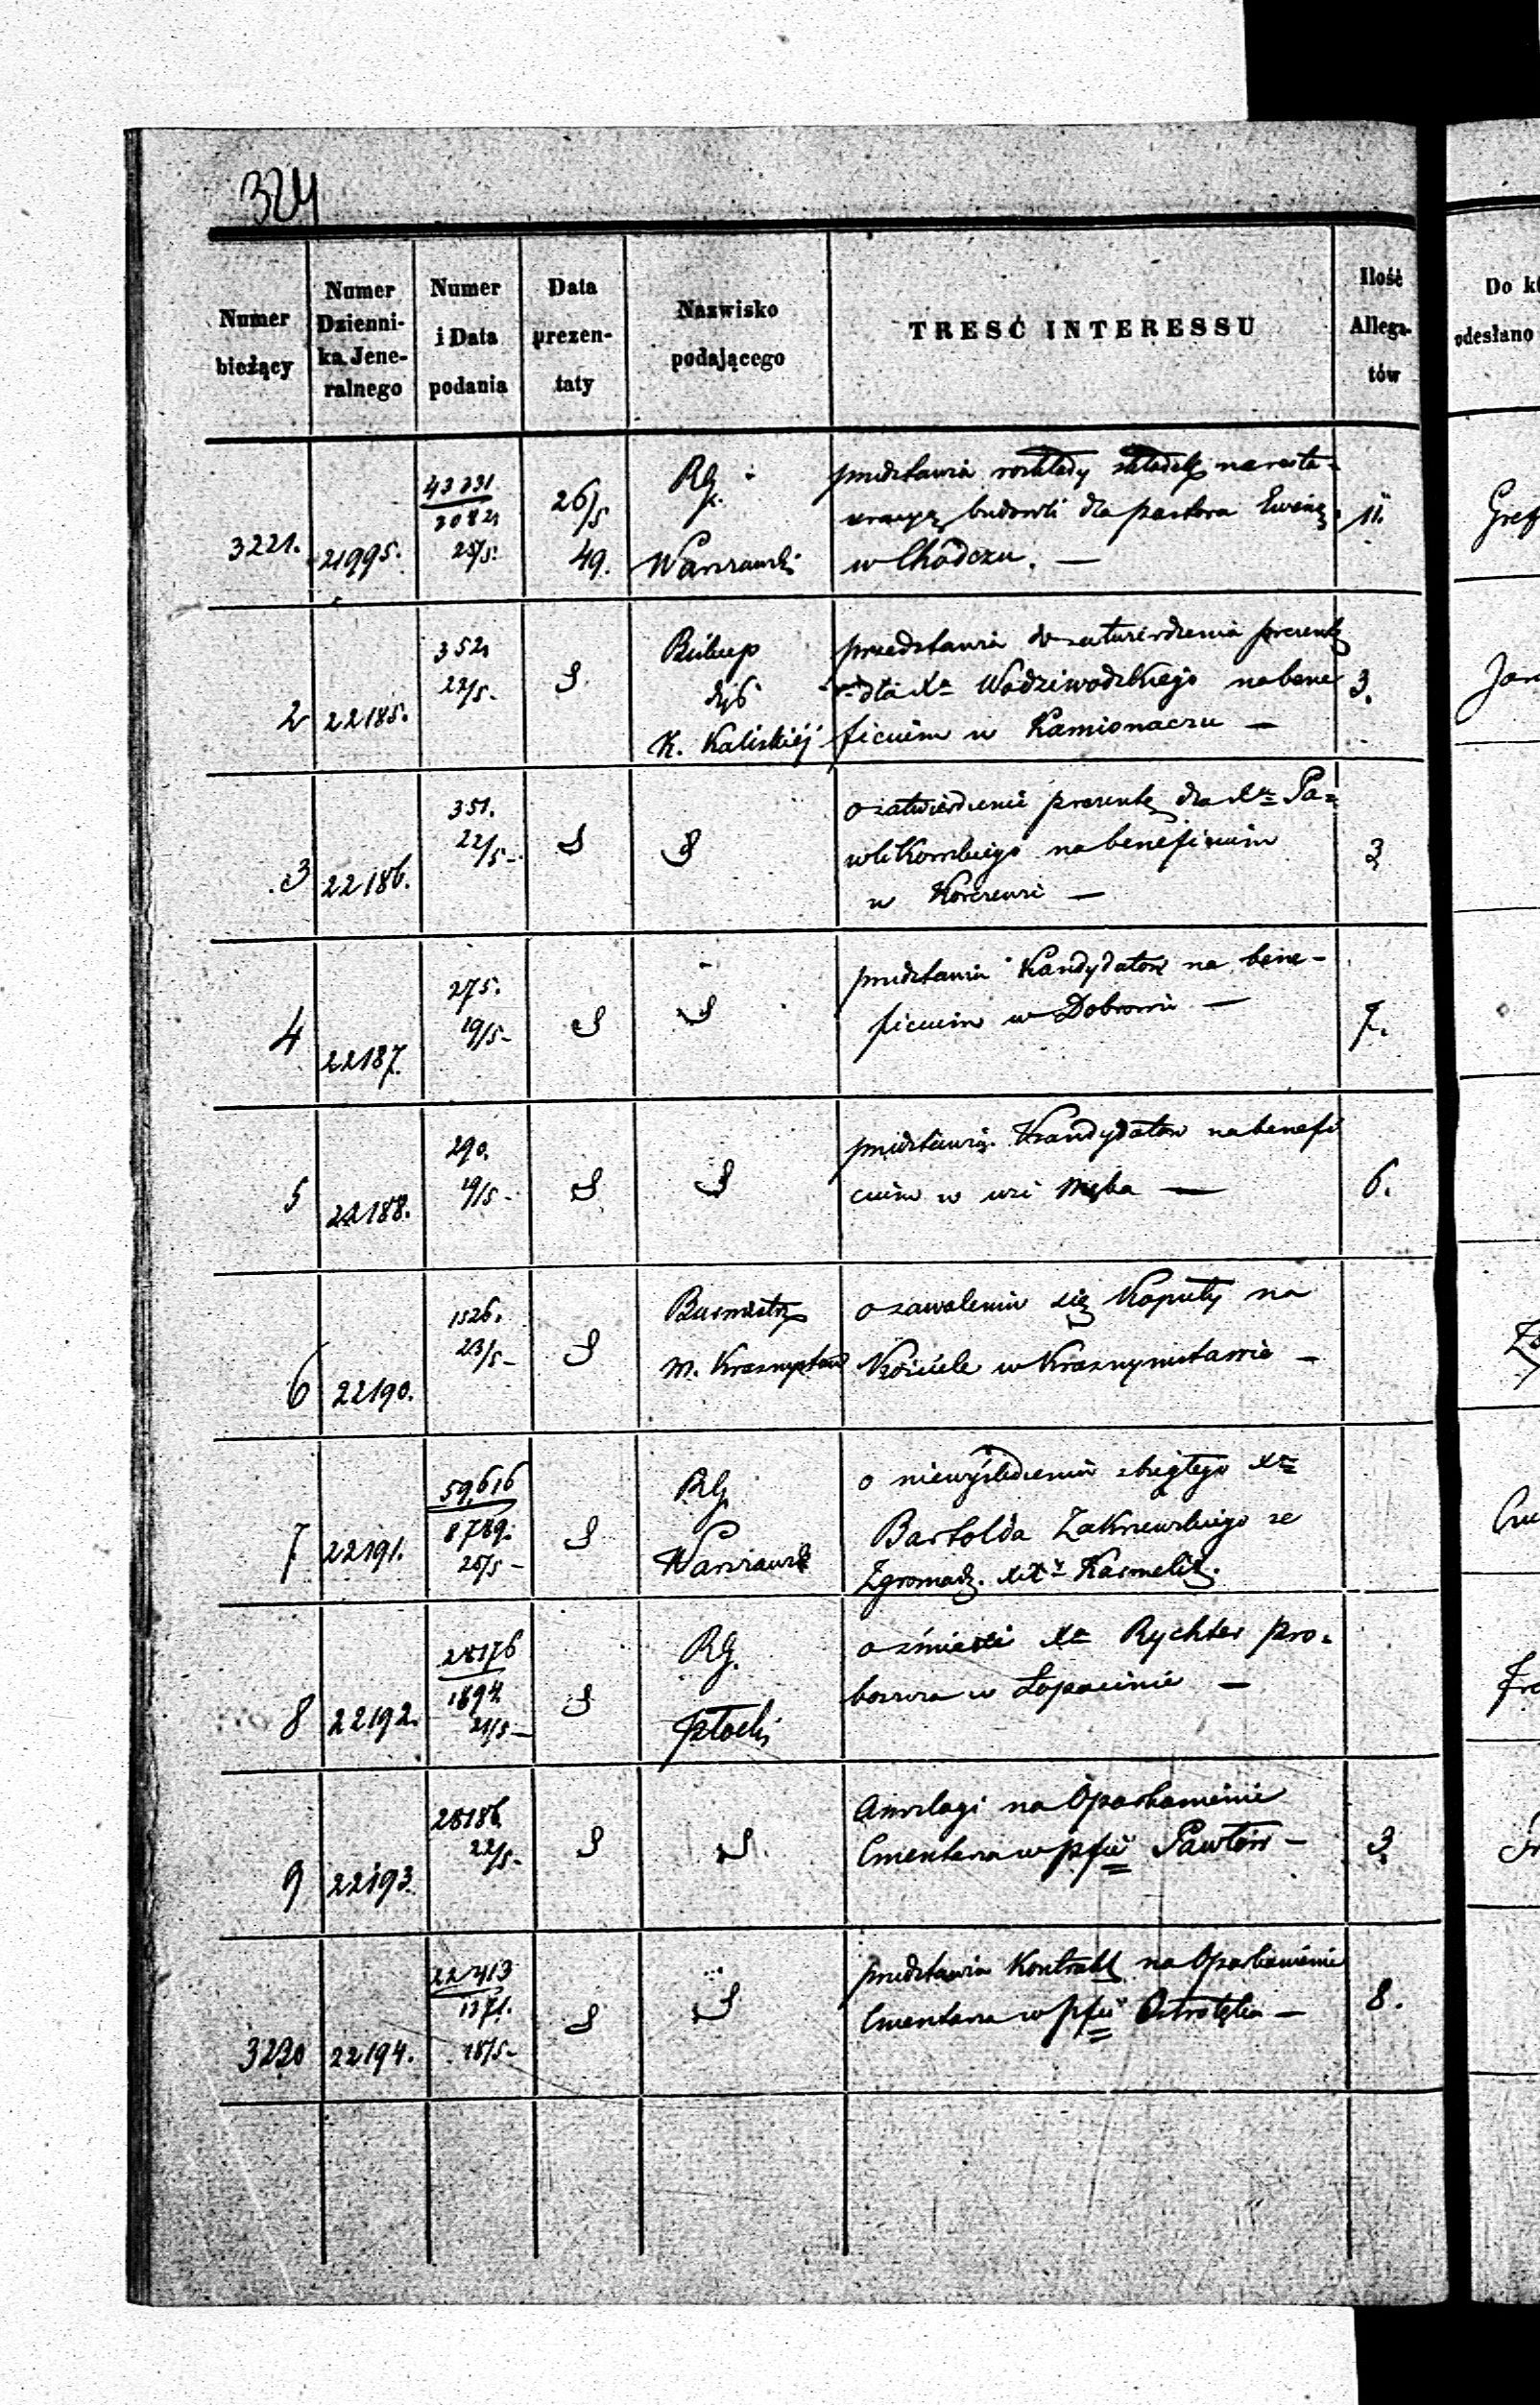 324
Numer bieżący
Numer Dzienni- ka Jene- ralnego
Numer i Data podania
Data prezen- taty
Nazwisko podającego
TRESĆ INTERESSU
Ilość Allega- tów
Do
odesłano
43231
3082
25/5.
26/5
RG.
przedstawia rozkłady składek na resta-
uracyą budowli dla pastora Ewang.
11.
3221.
21995.
49.
Warszawski
w Chodczu. —
352
22/5.
S
Biskup
dyć
K. Kaliskiéj
przedstawia do zatwierdzenia prezentę
dla Xa Wodziwodzkiego na bene
ficium w Kamionaczu —
3.
2
22185.
351.
22/5-
S
S
o zatwierdzenie prezenty dla Xa Pa=
wlikowskiego na beneficium
w Korczewie —
3
3
22186.
275.
19/5-
S
S
przedstawia Kandydatów na bene-
ficium w Dobrowie —
7.
4
22187.
290.
19/5-
S
S
przedstawia Kandydatów na benefi
cium w wsi Męka —
6.
5
22188.
1526.
23/5-
S
Burmistrz
m. Krasnystaw
o zawaleniu się Kopuły na
Kościele w Krasnymstawie —
6
22190.
59,616
8789.
25/5-
S
RG
Warszawsk
o niewyśledzeniu zbiegłego Xa
Bartolda Zakrzewskiego ze
Zgromadz. XXw Karmelit.
7
22191.
28176
1894
21/5-
S
RG.
Płocki
o śmierci Xa Rychter pro=
boszcza w Łopacinie —
8
22192.
28186
22/5-
S
S.
Anszlagi na Oparkanienie
Cmentarza w pfii Pawłów —
3.
9
22193.
22413
1371.
18/5-
S
S
przedstawia Kontrakt na Oparkanienie
Cmentarza w pfii Ostrołęka —
8.
3230
22194.